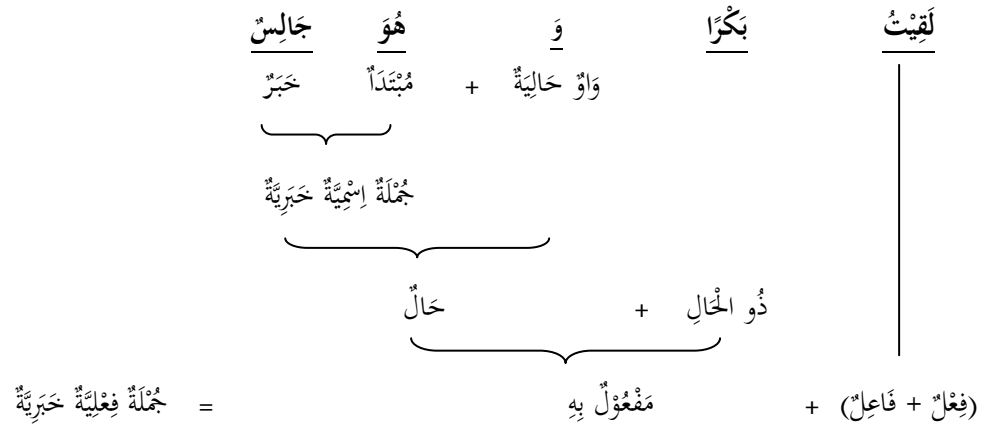 لَقِيْتُ بَكْرًا وَ هُوَ جَالِسٌ
وَاوٌ حَالِيَةٌ + مُبْتَدَاٌ خَبَرٌ
جُمْلَةٌ اِسْمِيَّةٌ خَبَرِيَّةٌ
ذُو الْحَالِ + حَالٌ
(فِعْلٌ + فَاعِلٌ) + مَفْعُوْلٌ بِهِ = جُمْلَةٌ فِعْلِيَّةٌ خَبَرِيَّةٌ